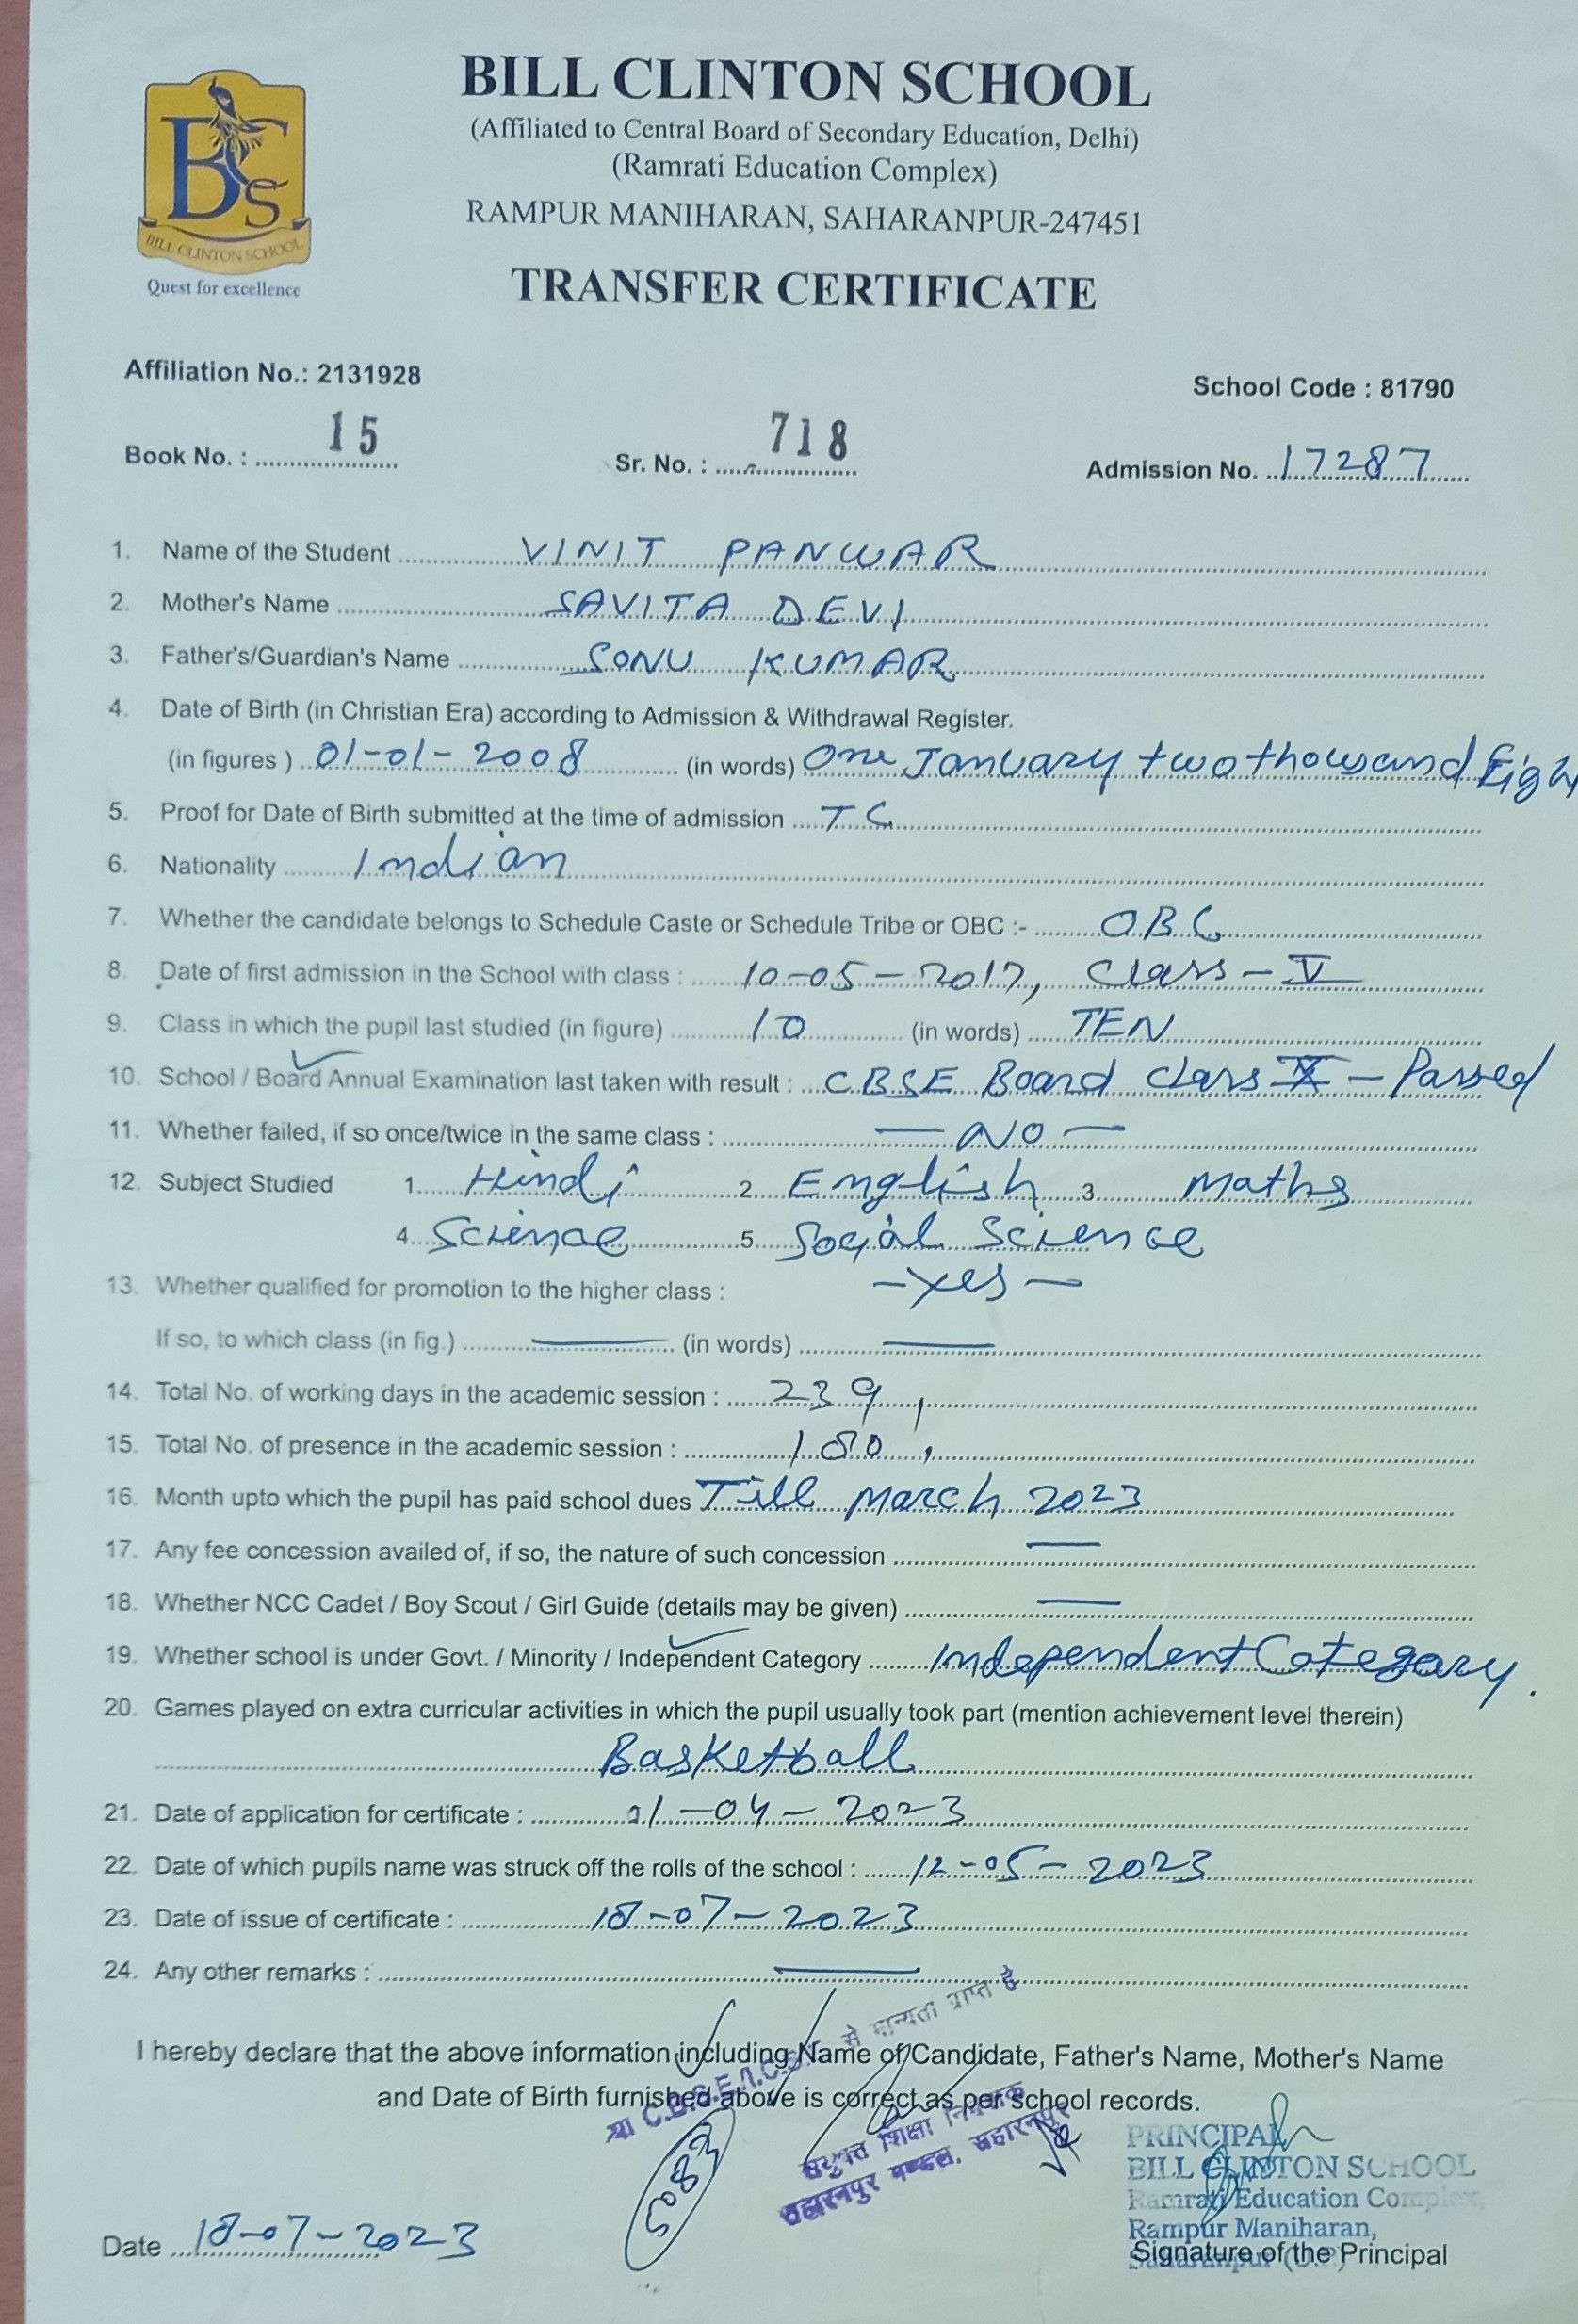 BILL CLINTON SCHOOL
(Affiliated to Central Board of Secondary Education, Delhi)
(Ramrati Education Complex)
RAMPUR MANIHARAN, SAHARANPUR-247451
BCS
BILL CLINTON SCHOOL
Quest for excellence
TRANSFER CERTIFICATE
Affiliation No.: 2131928 School Code : 81790
Book No. : 15 Sr. No. : 718 Admission No. 17287
1. Name of the Student VINIT PANWAR
2. Mother's Name SAVITA DEVI
3. Father's/Guardian's Name SONU KUMAR
4. Date of Birth (in Christian Era) according to Admission & Withdrawal Register.
(in figures ) 01-01-2008 (in words) One January two thousand Eigh
5. Proof for Date of Birth submitted at the time of admission TC
6. Nationality Indian
7. Whether the candidate belongs to Schedule Caste or Schedule Tribe or OBC :- OBC
8. Date of first admission in the School with class : 10-05-2017, Class-V
9. Class in which the pupil last studied (in figure) 10 (in words) TEN
10. School / Board Annual Examination last taken with result : CBSE Board class X - Passed
11. Whether failed, if so once/twice in the same class : - NO -
12. Subject Studied 1. Hindi 2. English 3. Maths
4. Science 5. Social Science
13. Whether qualified for promotion to the higher class : - Yes -
If so, to which class (in fig.) — (in words) —
14. Total No. of working days in the academic session : 239,
15. Total No. of presence in the academic session : 180,
16. Month upto which the pupil has paid school dues Till March 2023
17. Any fee concession availed of, if so, the nature of such concession —
18. Whether NCC Cadet / Boy Scout / Girl Guide (details may be given) —
19. Whether school is under Govt. / Minority / Independent Category Independent Category.
20. Games played on extra curricular activities in which the pupil usually took part (mention achievement level therein)
Basketball
21. Date of application for certificate : 01-04-2023
22. Date of which pupils name was struck off the rolls of the school : 12-05-2023
23. Date of issue of certificate : 18-07-2023
24. Any other remarks : —
I hereby declare that the above information including Name of Candidate, Father's Name, Mother's Name
and Date of Birth furnished above is correct as per school records.
C.B.S.E./I.C.S.E. से मान्यता प्राप्त है
संयुक्त शिक्षा निदेशक
सहारनपुर मण्डल, सहारनपुर
5083
PRINCIPAL
BILL CLINTON SCHOOL
Ramrati Education Complex,
Rampur Maniharan,
Saharanpur (U.P.)
Date 18-07-2023 Signature of the Principal